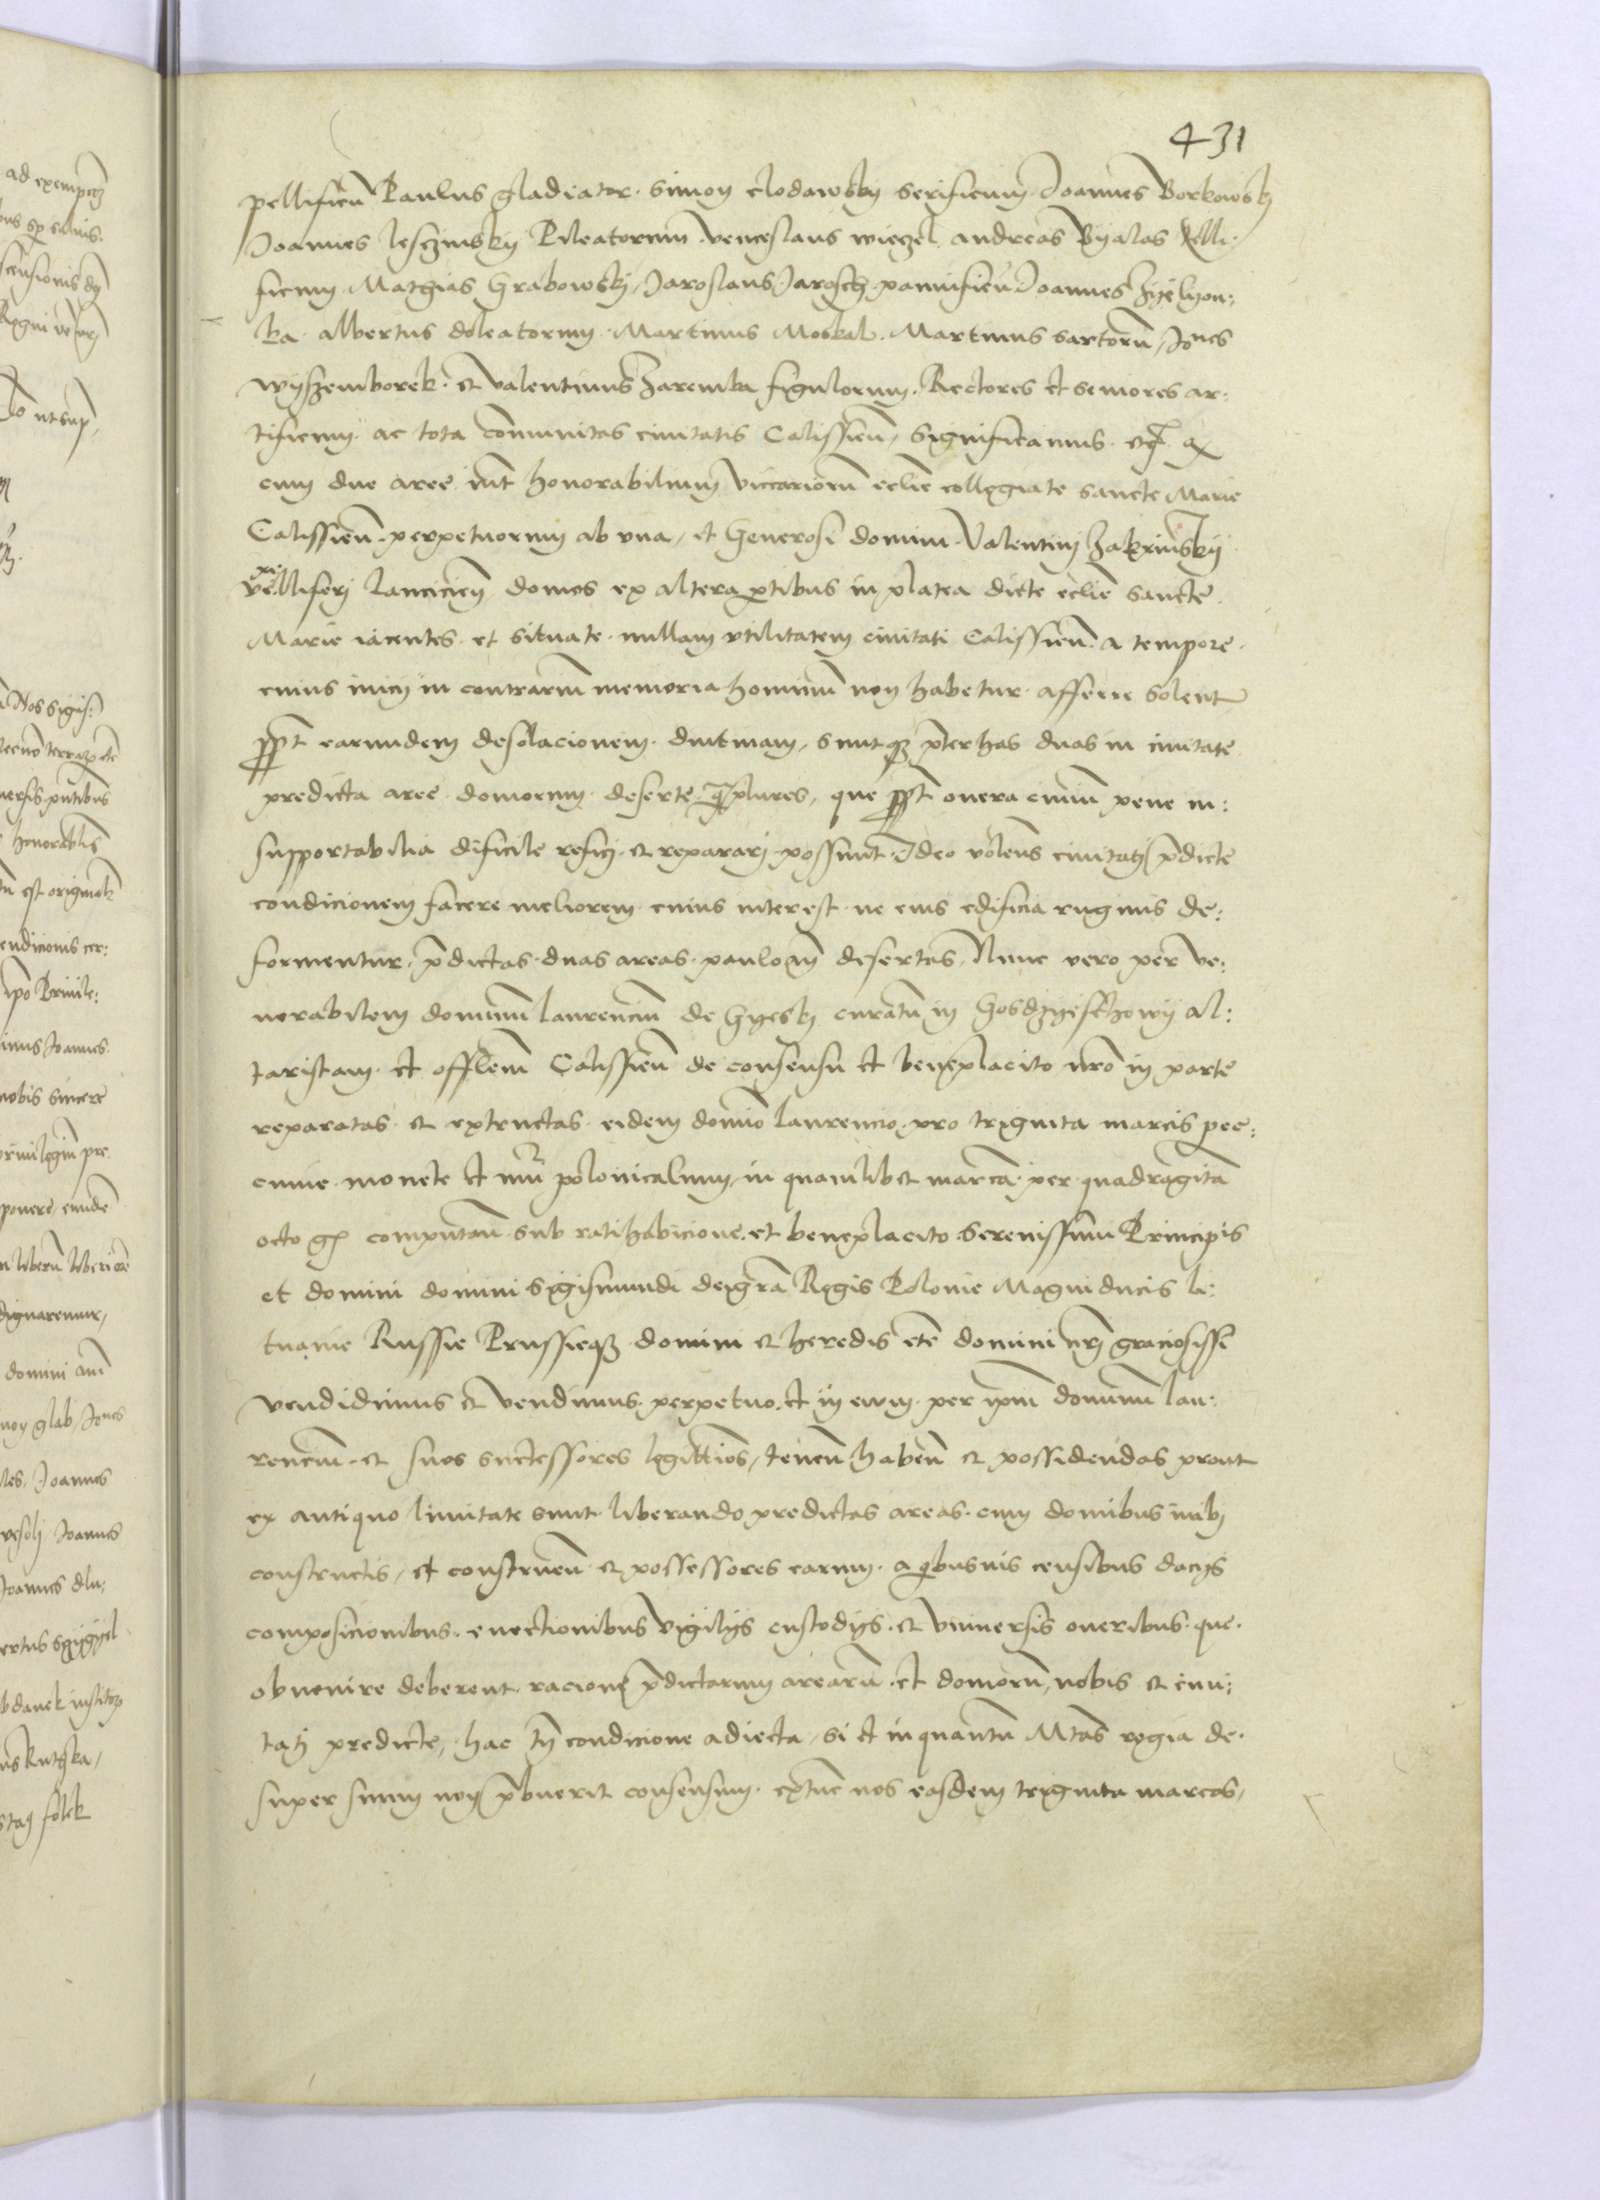 431
pellificū Paulus gladiator. Simon clodawskij serificum. Joannes Borkowskj
Joannes lesczinskij Pileatorum. venceslaus wiezel. andreas Byalas pelli:
ficum. Mathias Grabowskj, Jaroslaus Jarosch pannificū Joannes
ka. albertus doleatorum. Martinus Moskal. Martinus sartorū, Joñes
wyszemborek. et valentinus Zaremba figulorum. Rectores et seniores ar:
tificum. ac tota cōmunitas ciuitatis Calissieñ, significamus.
cum due aree int̄ honorabilium viccariorū ecclīe collegiate sancte Marie
Calissieñ. perpetuorum ab vna, et Generosi domini. Valentinj Zakrzinskij
vexilliferj lanciciēn domos ex altera p̄tibus in platea dicte ecclīe sancte
Marie iacentes. et situate. nullam vtilitatem ciuitati Calissieñ. a tempore.
cuius inicij in contrarium memoria hominū non habetur. afferre solent
ppt̄ earundem desolacionem. diutinam, suntq3 p̄ter has duas in ciuitate
predicta aree domorum. deserte q̄plures, que ppt̄ onera ciuiū pene in:
supportabilia dificile reficj. et repararj possunt. Ideo volens ciuitatj p̄dicte
condicionem facere meliorem. cuius interest. ne eius edificia ruginis de:
formentur. p̄dictas. duas areas. pauloañ desertas, Nunc vero per ve:
nerabilem dominum laurenciū de Gyeskj curatū in al:
taristam. et offlem Calissieñ de consensu et beneplacito nr̄o in parte
reparatas. et extructas. eidem domino laurencio. pro triginta marcis pec:
cunie. monete et nu͂i polonicalium, in quamlibet marcā. per quadragita
octo gr̄ computañ. sub ratihabicione. et beneplacito. Serenissimi Principis
et domini domini Sigismundi deigrā Regis Polonie Magni ducis li:
tuanie Russie Prussieq3 domini et heredis etc̄ domini nr̄j graciosissi
vendidimus et vendimus. perpetuo. et in ewm. per ipm̄ dominū lau:
renciū. et suos successores legittimos, teneñ habeñ et possidendas prout
ex antiquo limitate sunt. liberando predictas areas. cum domibus inibj
constructis, et construeñ et possessores earum. a quibusuis censibus dacijs
composicionibus. euectionibus vigilijs custodijs. et vniuersis oneribus. que.
obuenire deberent. racione p̄dictarum arearū. et domorū, nobis et ciui:
tatj predicte, hac tn̄ condicione adiecta, si et inquantū Mtās regia de.
super suum non p̄buerit consensum. extunc nos easdem triginta marcas,